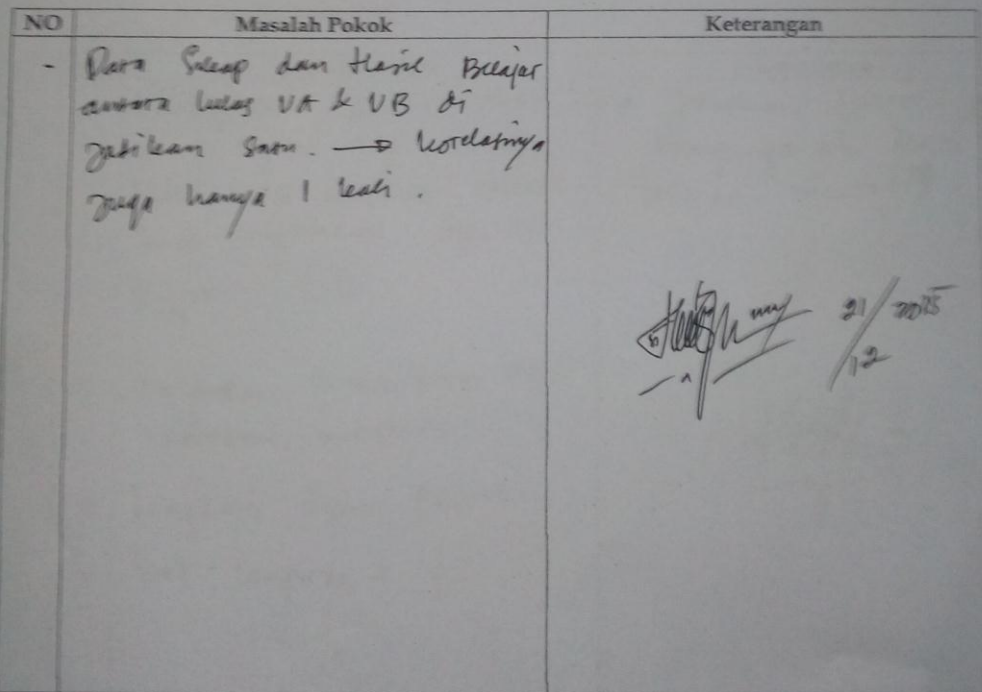 NO Masalah Pokok Keterangan
- Data Sikap dan Hasil Belajar
antara kelas VA & VB di
jadikan satu. → korelasinya
juga hanya 1 kali.
21/12 2015